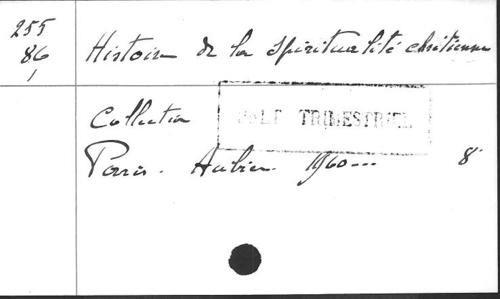 255
86
Histoire de la spiritualité chrétienne
Collection
TRIMESTRIEL
Paris. Aubier. 1960--- 8°